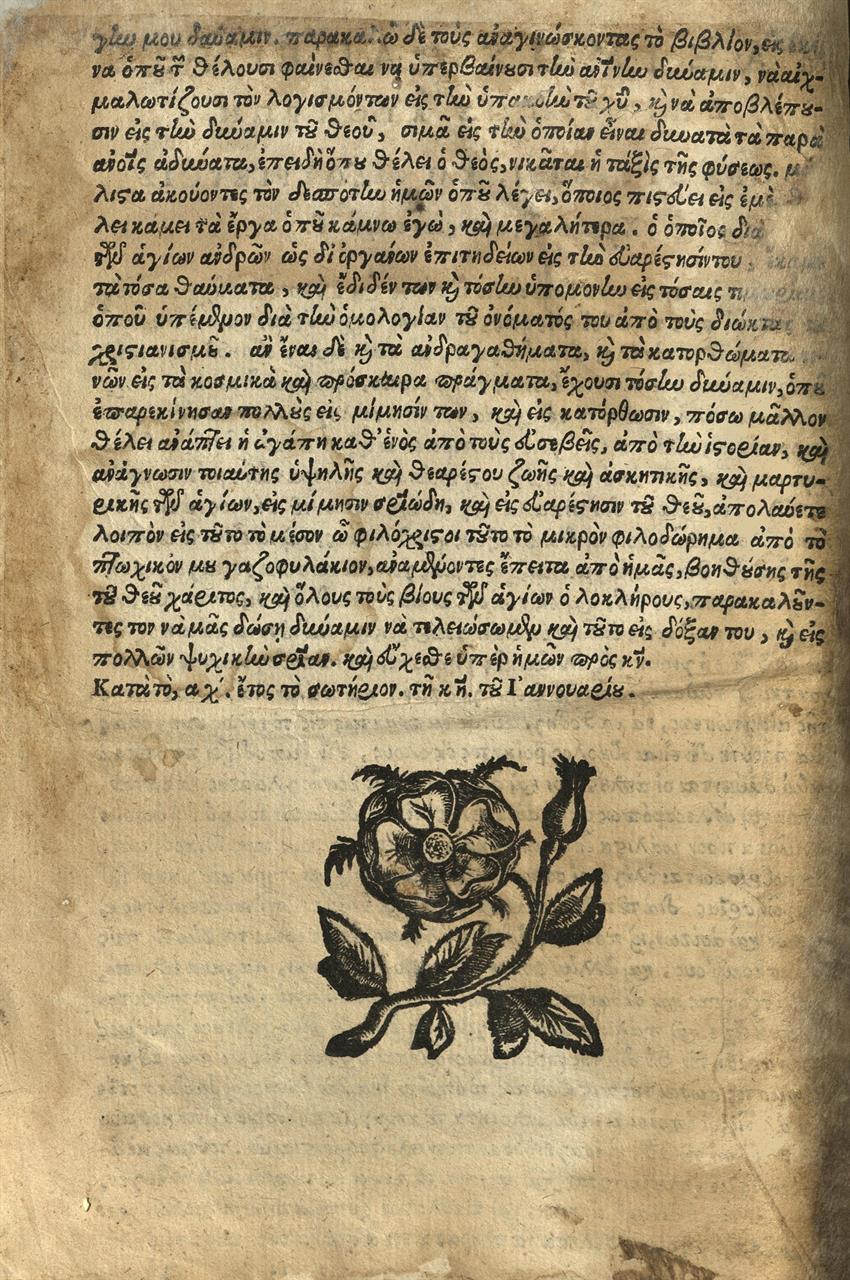 μου δύναμιν. παρακαλῶ δὲ τοὺς ἀναγινώσκοντας τὸ βιβλίον, εἰς
να ὁποῦ τῇ θέλουσι φαίνεσθαι νὰ ὑπερβαίνουσι τὴν δύναμιν, νὰ αἰχ-
μαλωτίζουσι τὸν λογισμόν των εἰς τὴν ὑπακοὴν τοῦ χῦ, καὶ νὰ ἀποβλέπου-
σιν εἰς τὴν δύναμιν τοῦ θεοῦ, σιμᾶ εἰς τὴν ὁποίαν εἶναι δυνατὰ τὰ παρὰ
ἀνοῖς ἀδύνατα, ἐπειδὴ ὅπου θέλει ὁ θεὸς, νικᾶται ἡ τάξις τῆς φύσεως.
λιστα ἀκούοντες τὸν δεσπότην ἡμῶν ὁποῦ λέγει, ὅποιος πιστεύει εἰς ἐμὲ
λει κάμει τὰ ἔργα ὁποῦ κάμνω ἐγὼ, καὶ μεγαλήτερα. ὁ ὁποῖος διὰ
τῶν ἁγίων ἀνδρῶν ὡς δι' ὀργάνων ἐπιτηδείων εἰς τὴν εὐαρέστησίν του,
τὰ τόσα θαύματα, καὶ ἔδιδέν των καὶ τόσην ὑπομονὴν εἰς τόσαις
ὁποῦ ὑπέμενον διὰ τὴν ὁμολογίαν τοῦ ὀνόματός του ἀπὸ τοὺς διώκτας
χριστιανισμοῦ. ἂν ἦναι δὲ καὶ τὰ ἀνδραγαθήματα, καὶ τὰ κατορθώματα
νῶν εἰς τὰ κοσμικὰ καὶ πρόσκαιρα πράγματα, ἔχουσι τόσην δύναμιν, ὁποῦ
ἐπαρεκίνησαν πολλοὺς εἰς μίμησίν των, καὶ εἰς κατόρθωσιν, πόσῳ μᾶλλον
θέλει ἀνάπτει ἡ ἀγάπη καθ' ἑνὸς ἀπὸ τοὺς εὐσεβεῖς, ἀπὸ τὴν ἱστορίαν, καὶ
ἀνάγνωσιν τοιαύτης ὑψηλῆς καὶ θεαρέστου ζωῆς καὶ ἀσκητικῆς, καὶ μαρτυ-
ρικῆς τῶν ἁγίων, εἰς μίμησιν σωτηριώδη, καὶ εἰς εὐαρέστησιν τοῦ θεοῦ, ἀπολαύετε
λοιπὸν εἰς τοῦτο τὸ μέσον ὦ φιλόχριστοι τοῦτο τὸ μικρὸν φιλοδώρημα ἀπὸ τὸ
πτωχικόν μου γαζοφυλάκιον, ἀναμένοντες ἔπειτα ἀπὸ ἡμᾶς, βοηθούσης τῆς
τοῦ θεοῦ χάριτος, καὶ ὅλους τοὺς βίους τῶν ἁγίων ὁλοκλήρους, παρακαλοῦν-
τες τον νὰ μᾶς δώσῃ δύναμιν νὰ τελειώσωμεν καὶ τοῦτο εἰς δόξαν του, καὶ εἰς
πολλῶν ψυχικὴν σρίαν. καὶ εὔχεσθε ὑπὲρ ἡμῶν πρὸς κν̄.
Κατὰ τὸ, αχ΄. ἔτος τὸ σωτήριον. τῇ κη. τοῦ Ἰαννουαρίου.